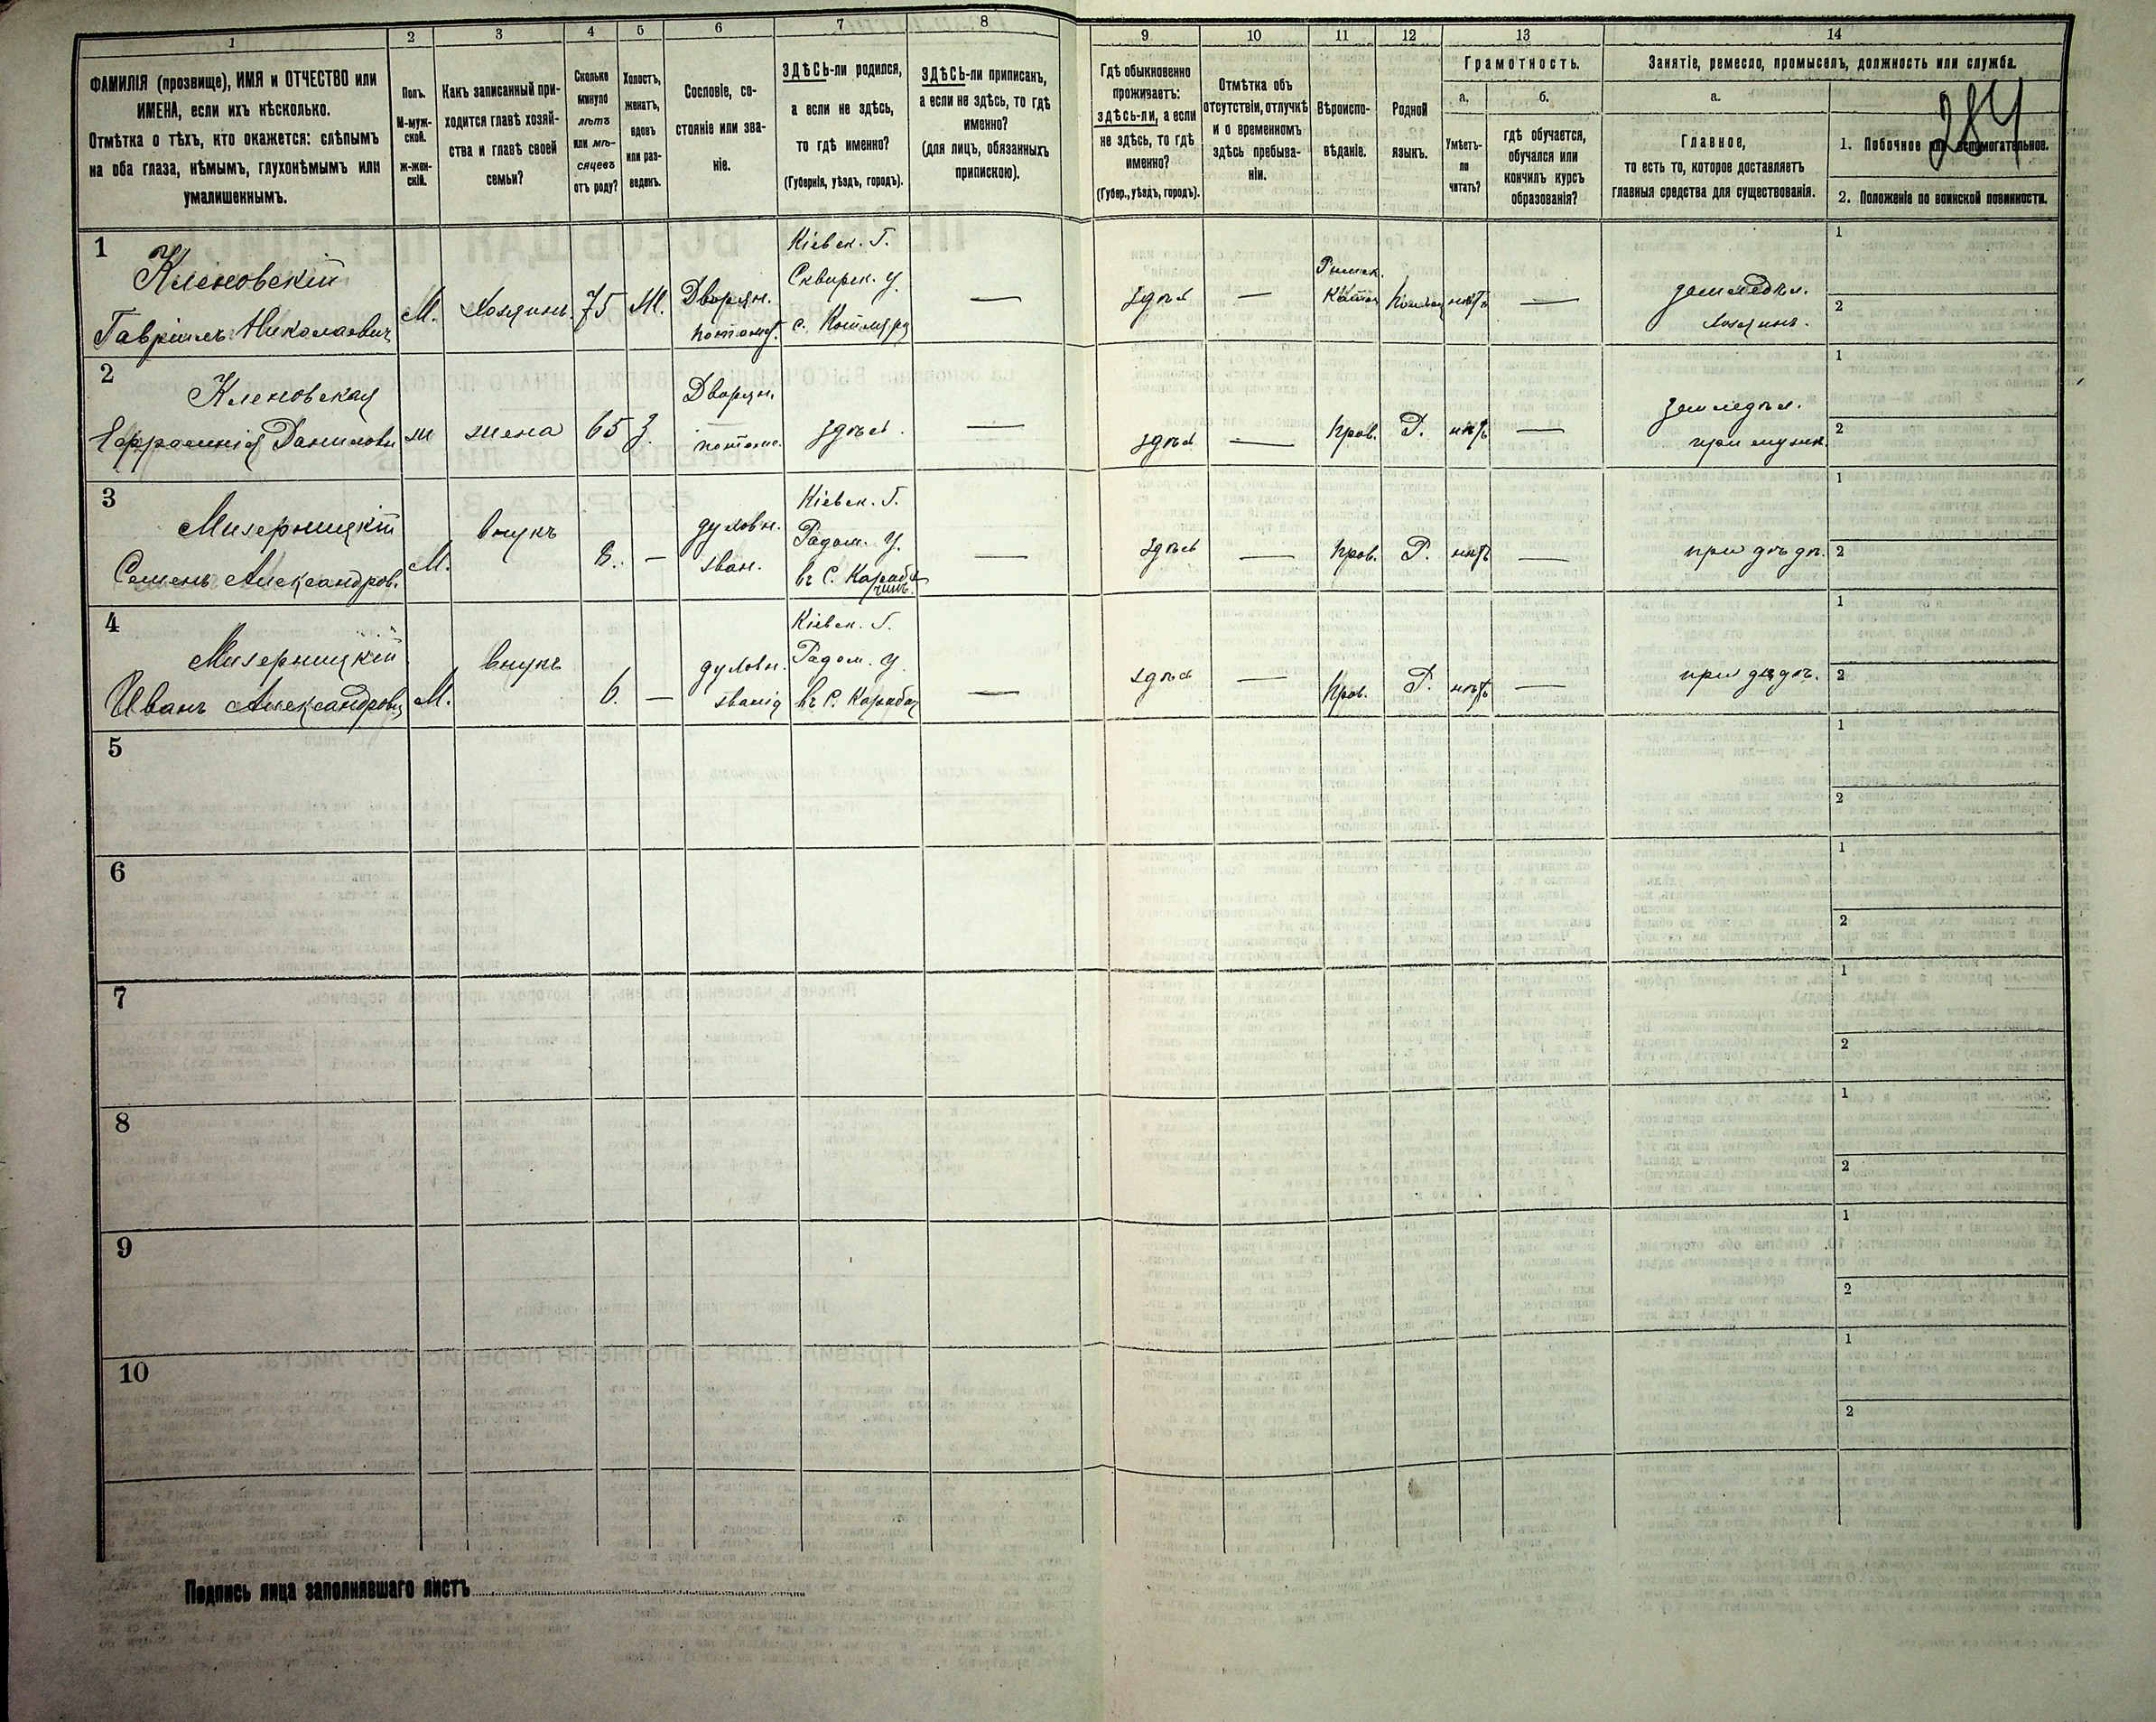 1
2
3
4
5
6
7
8
9
10
11
12
13
14
ФАМИЛІЯ (прозвище), ИМЯ и ОТЧЕСТВО или
ИМЕНА, если ихъ нѣсколько.
Отмѣтка о тѣхъ, кто окажется: слѣпымъ
на оба глаза, нѣмымъ, глухонѣмымъ или
умалишеннымъ.
Полъ.
М-муж-
ской.
ж-жен-
скій.
Какъ записанный при-
ходится главѣ хозяй-
ства и главѣ своей
семьи?
Сколько
минуло
лѣтъ
или мѣ-
сяцевъ
отъ роду?
Холостъ,
женатъ,
вдовъ
или раз-
веденъ.
Сословіе, со-
стояніе или зва-
ніе.
ЗДѢСЬ-ли родился,
а если не здѣсь,
то гдѣ именно?
(Губернія, уѣздъ, городъ).
ЗДѢСЬ-ли приписанъ,
а если не здѣсь, то гдѣ
именно?
(для лицъ, обязанныхъ
припискою).
Гдѣ обыкновенно
проживаетъ:
здѣсь-ли, а если
не здѣсь, то гдѣ
именно?
(Губер., уѣздъ, городъ).
Отмѣтка объ
отсутствіи, отлучкѣ
и о временномъ
здѣсь пребыва-
ніи.
Вѣроиспо-
вѣданіе.
Родной
языкъ.
Грамотность.
а.
Умѣетъ-
ли
читать?
б.
гдѣ обучается,
обучался или
кончилъ курсъ
образованія?
Занятіе, ремесло, промыселъ, должность или служба.
а.
Главное,
то есть то, которое доставляетъ
главныя средства для существованія.
284
1. Побочное или вспомогательное.
2. Положеніе по воинской повинности.
1
Кленовскій
Гавріилъ Николаевич
М.
Хозяинъ.
75
М.
Дворян.
потом.
Кіевск. Г.
Сквирск. у.
с. Котляр
—
здѣсь
—
Римск.
Катол
нѣтъ
—
земледѣл.
хозяинъ.
1
2
2
Кленовская
Ефросинія Данилов
ж
жена
65
З.
Дворян.
потом.
здѣсь.
—
здѣсь
—
Прав.
Р.
нѣтъ
—
земледѣл.
при мужѣ.
1
2
3
Мизерницкій
Семенъ Александров.
М.
внукъ
8.
—
духовн.
зван.
Кіевск. Г.
Радом. у.
въ с. Караба
чинъ.
—
здѣсь
—
Прав.
Р.
нѣтъ
—
при дѣдѣ.
1
2
4
Мизерницкій
Иванъ Александрович
М.
внукъ
6.
—
духовн.
званія
Кіевск. Г.
Радом. у.
въ с. Карабач
—
здѣсь
—
Прав.
Р.
нѣтъ
—
при дѣдѣ.
1
2
5
1
2
6
1
2
7
1
2
8
1
2
9
1
2
10
1
2
Подпись лица заполнявшаго листъ